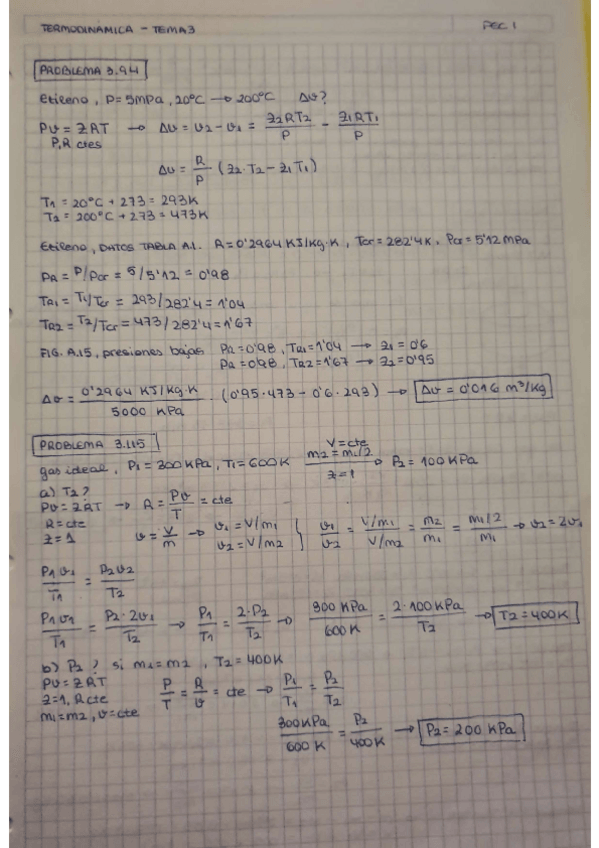 TERMODINÁMICA - TEMA 3 PEC 1
PROBLEMA 3.94
etileno, P = 5MPa, 20ºC → 200ºC Δv?
Pv = ZRT → Δv = v2 - v1 = Z2RT2/P - Z1RT1/P
P,R ctes
Δv = R/P (Z2·T2 - Z1T1)
T1 = 20ºC + 273 = 293K
T2 = 200ºC + 273 = 473K
Etileno, DATOS TABLA A.1. R = 0'2964 KJ/Kg·K, Tcr = 282'4K. Pcr = 5'12 MPa
PR = P/Pcr = 5/5'12 = 0'98
TR1 = T1/Tcr = 293/282'4 = 1'04
TR2 = T2/Tcr = 473/282'4 = 1'67
FIG. A.15, presiones bajas PR = 0'98, TR1 = 1'04 → Z1 = 0'6
PR = 0'98, TR2 = 1'67 → Z2 = 0'95
Δv = 0'2964 KJ/Kg·K / 5000 KPa · (0'95·473 - 0'6·293) → Δv = 0'016 m³/Kg
PROBLEMA 3.115
gas ideal, P1 = 300 KPa, T1 = 600K V=cte m2=m1/2 Z=1 → P2 = 100 KPa
a) T2?
PV = ZRT → R = Pv/T = cte
R = cte
Z = 1
v = V/m → v1 = V/m1
v2 = V/m2
v1/v2 = V/m1 / V/m2 = m2/m1 = m1/2 / m1 → v2 = 2v1
P1v1/T1 = P2v2/T2
P1v1/T1 = P2·2v1/T2 → P1/T1 = 2·P2/T2 → 300 KPa/600 K = 2·100 KPa/T2 → T2 = 400K
b) P2? si m1 = m2, T2 = 400K
PV = ZRT P/T = R/v = cte → P1/T1 = P2/T2
Z=1, R cte
m1 = m2, v = cte
300KPa/600 K = P2/400K → P2 = 200 KPa